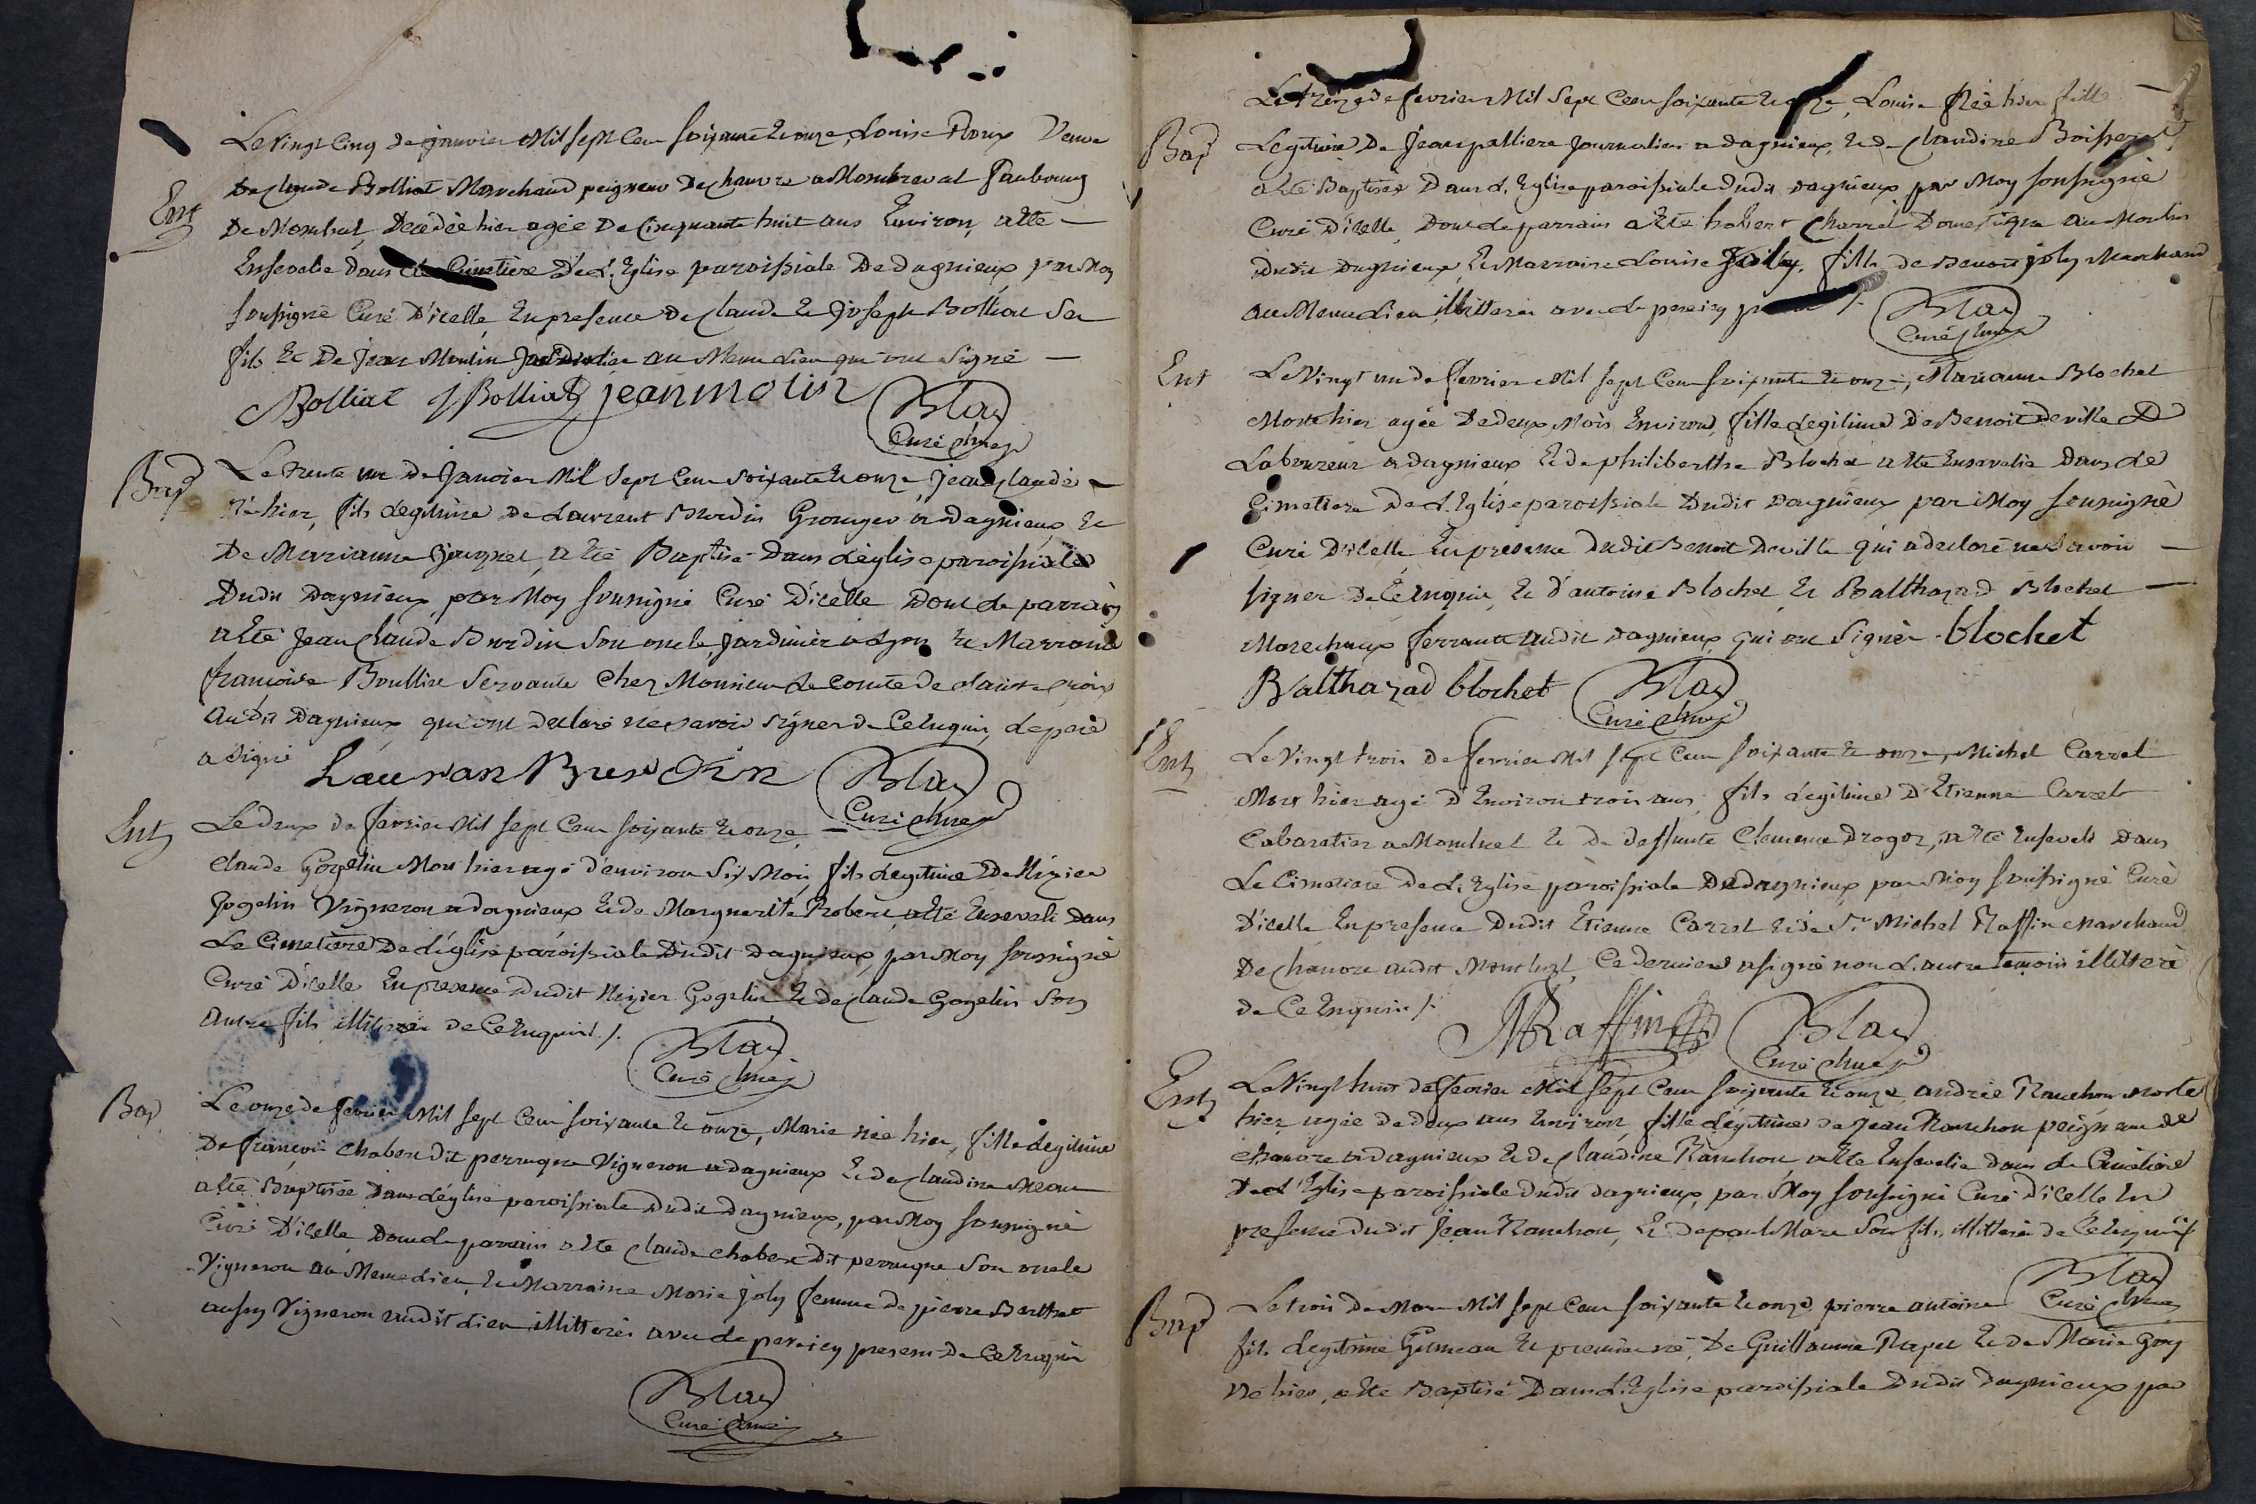 Le Vingt Cinq de janvier Mil sept Cent soixante et onze, Louise Roux Veuve
De Claude Bolliat Marchand peigneur De Chanvre a Montreval Faubourg
Ent
De Montluel, Décédée hier agée De Cinquante huit ans Environ, a été
Ensevelie dans Cimetiere De L'Eglise paroissiale De dagnieux par Moy
soussigné Curé D'icelle, En presence De Claude et joseph Bolliat Ses
fils et De Jean Moulin au Meme Lieu qui ont Signé
Bolliat J Bolliat jean molin Blay
Curé
Bap
Le trente un De Janvier Mil Sept Cent soixante et onze, Jean Claude
né hier, fils Legitime De Laurent Burdin Granger a Dagnieux et
De Marianne jacquet, a été Baptisé Dans L'église paroissiale
Dudit Dagnieux, par Moy soussigné Curé D'icelle Dont Le parrain
a Eté Jean Claude Burdin Son oncle jardinier a Lyon et Marraine
francoise Boullise Servante Chez Monsieur Le Comte De Sainte Croix
Audit Dagnieux qui ont Declaré ne savoir signer De Ce Enquis, Le pere
a Signé Lauran Burdin Blay
Curé
Ent
Le Deux De fevrier Mil sept Cent soixante et onze
Claude Gogelin Mort hier agé d'environ Six Mois, fils Legitime De Nizier
Gogelin Vigneron a dagnieux et De Marguerite Robert, a été Enseveli Dans
Le Cimetiere De L'église paroissiale Dudit dagnieux, par Moy soussigné
Curé D'icelle En presence Dudit Nizier Gogelin et De Claude Gogelin Son
Autre fils illiterés de Ce Enquis /.
Blay
Curé
Bap
Le onze de fevrier Mil sept Cent soixante et onze, Marie née hier, fille Legitime
De françois Chabert dit perruque Vigneron a dagnieux et De Claudine
a été Baptisée Dans L'église paroissiale Dudit Dagnieux, par Moy soussigné
Curé D'icelle, Dont Le parrain a Eté Claude Chabert Dit perruque Son oncle
Vigneron au Meme Lieu, et Marraine Marie joly femme De pierre Berthet
aussy Vigneron audit Lieu illitterés avec Le pere icy present De Ce Enquis
Blay
Curé
Le treize De fevrier Mil Sept Cent soixante et onze, Louise Née hier fille
Bap
Legitime De Jean palliere journalier a dagnieux, et De Claudine
a Eté Baptisée Dans L'Eglise paroissiale Dudit dagnieux par Moy soussigné
Curé D'icelle, Dont Le parrain a Eté Charrel Domestique au Moulin
dudit Dagnieux et Marraine Louise Joly, fille De Benoit joly Marchand
au Meme Lieu illitterés avec Le pere icy /.
Blay
Curé
Ent
Le Vingt un De fevrier Mil sept Cent soixante et onze, Marianne Blochet
Morte hier agée De deux Mois Environ, fille Legitime De Benoit Deville
Laboureur a dagnieux et De philiberthe Blochet a été Ensevelie Dans Le
Cimetiere De L'Eglise paroissiale Dudit Dagnieux par Moy soussigné
Curé D'icelle, En presence Dudit Benoit Deville qui a declaré ne Savoir
signer De Ce Enquis, et d'antoine Blochet et Balthazard Blochet
Marechaux ferrants audit Dagnieux qui ont Signés. blochet
Balthazad blochet Blay
Curé
Ent
Le Vingt trois De fevrier Mil sept Cent soixante et onze, Michel Carrel
Mort hier agé D'Environ trois ans, fils Legitime D'Etienne Carrel
Cabaretier a Montluel et De deffunte Clemence Drogoz, a été Enseveli Dans
Le Cimetiere De L'Eglise paroissiale De Dagnieux par Moy soussigné Curé
D'icelle En presence Dudit Etienne Carrel et de Sr Michel Raffin Marchand
De Chanvre audit Montluel, Ce dernier a signé non L'autre temoin illitteré
de Ce Enquis /.
MRaffin Blay
Curé
Ent
Le Vingt huit De fevrier Mil sept Cent soixante et onze, andrée Ranchon Morte
hier, agée De deux ans Environ, fille Legitime De Jean Ranchon peigneur de
Chanvre a dagnieux et De Claudine Ranchon a été Ensevelie dans Le Cimetiere
De L'Eglise paroissiale Dudit dagnieux, par Moy soussigné Curé D'icelle En
presence Dudit Jean Ranchon, et De paul Marc Son fils, illitterés de Ce Enquis
Blay
Curé
Bap
Le trois De Mars Mil sept Cent soixante et onze, pierre antoine
fils Legitime Gemeau et premier né, De Guillaume Rapet et De Marie
Né hier, a été Baptisé Dans L'Eglise paroissiale Dudit Dagnieux par